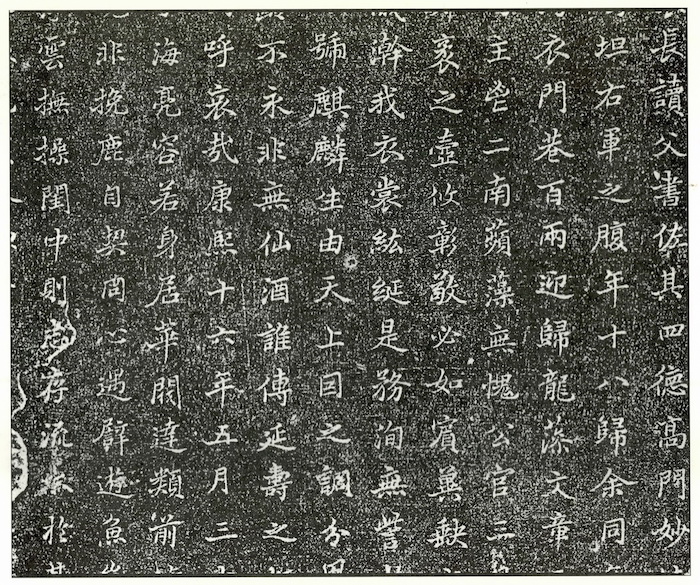 長讀父書佐其四德高門妙
坦右軍之腹年十八歸余同
衣門巷百兩迎歸龍藻文章
主鬯二南蘋藻無愧公官三
之壼攸彰敬必如賓冀缺
澣我衣裳紘綖是務洵無訾
號麒麟生由天上因之調分
不永非無仙酒誰傳延壽之
呼哀哉康熙十六年五月三
海亮容若身居華閥達類前
非挽鹿自契同心遇譬遊魚
雲撫操閨中則志存流於其